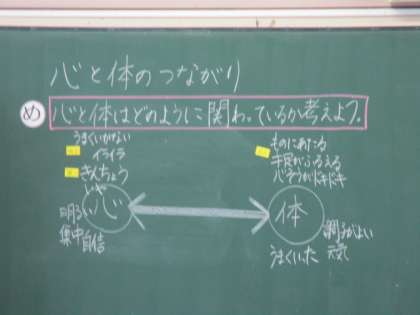 心と体のつながり
め
心と体はどのように関わっているか考えよう。
うまくいかない
イライラ
きんちょう
ものにあたる
手足がふるえる
心ぞうがドキドキ
心
体
明るい
集中
自信
うまくいった
調子がよい
元気